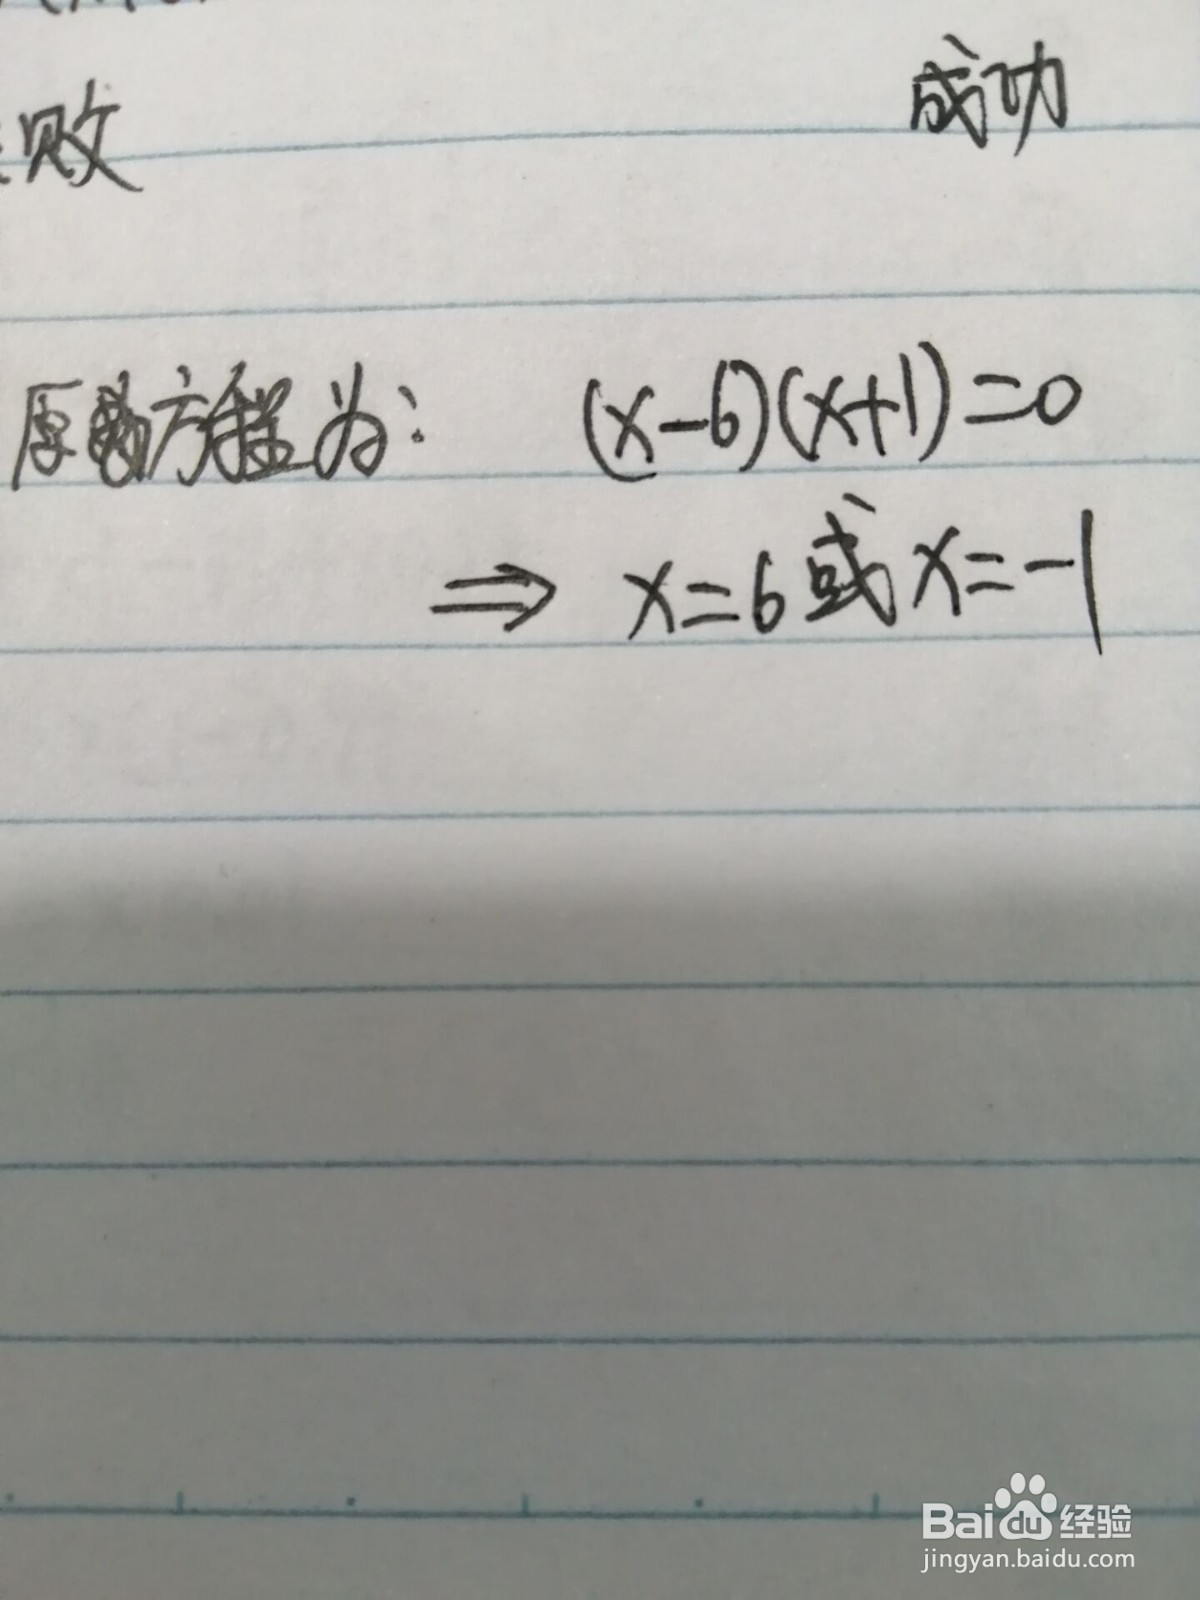 败 成功
原方程为: (x-6)(x+1)=0
⇒ x=6或x=-1
Baidu经验
jingyan.baidu.com